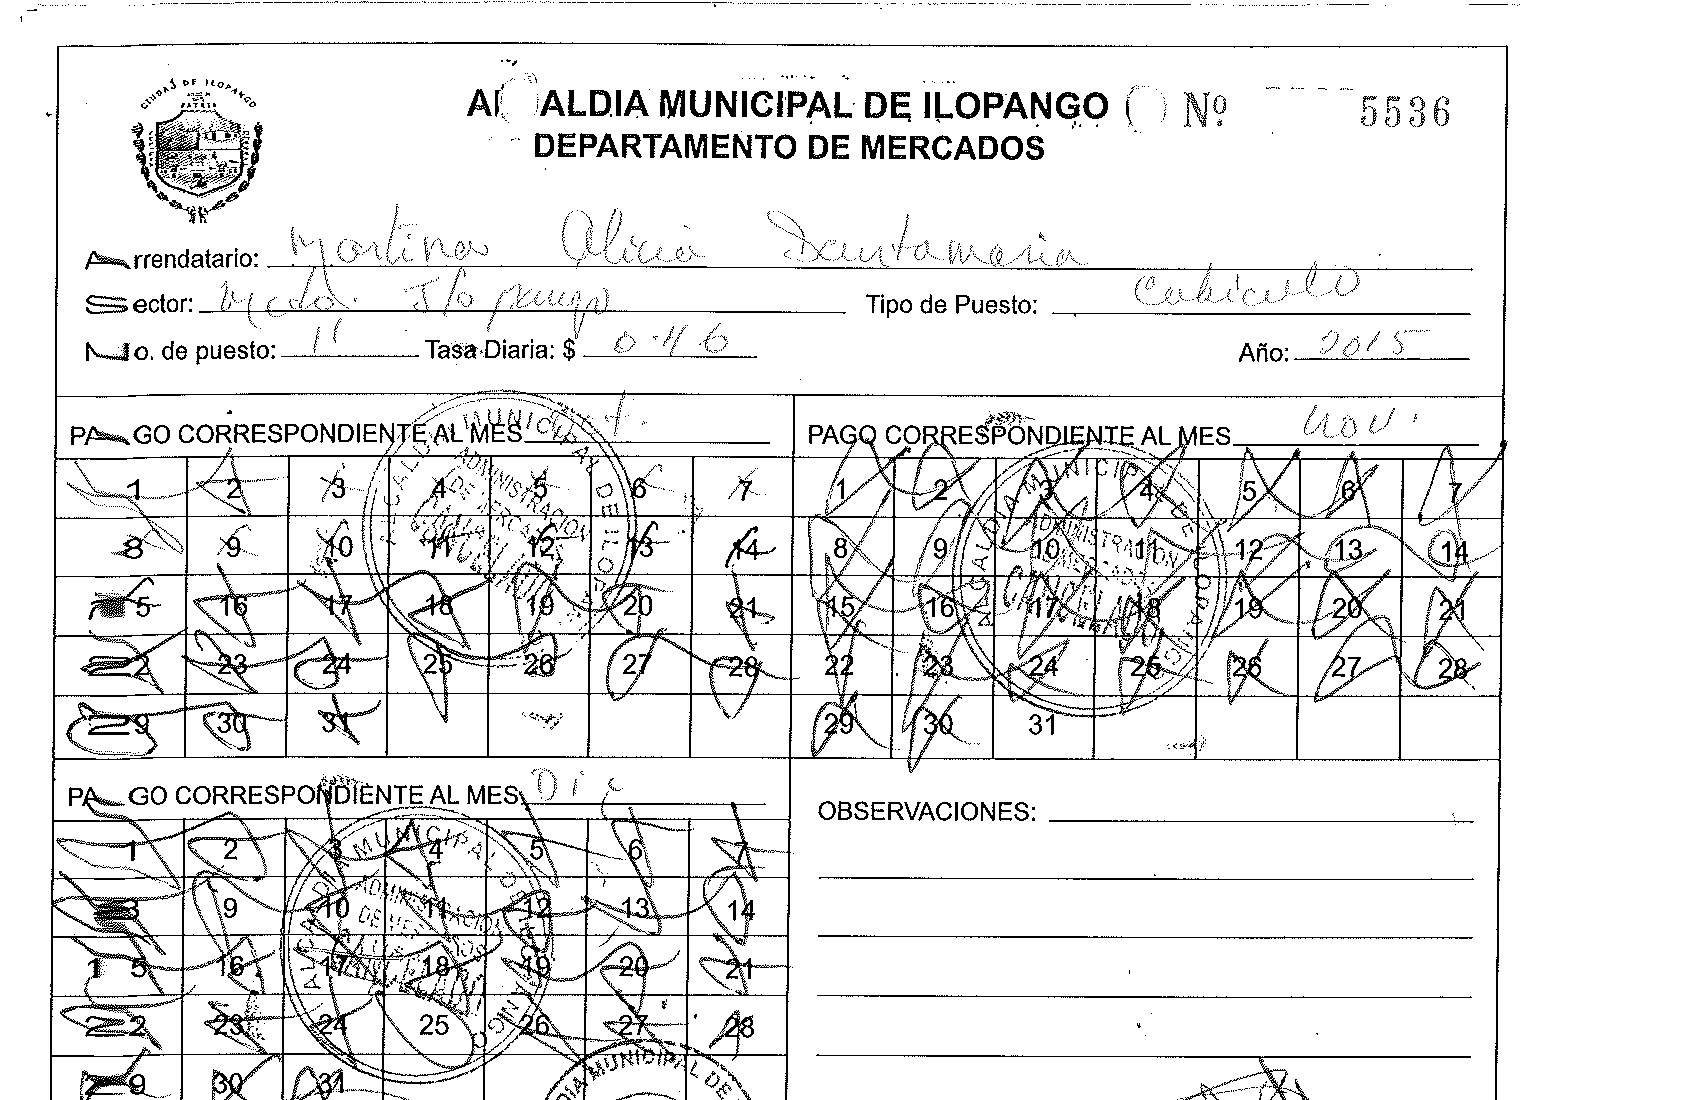 CIUDAD DE ILOPANGO
PATRIA
ALDIA MUNICIPAL DE ILOPANGO Nº 5536
DEPARTAMENTO DE MERCADOS
Arrendatario: Martina Alicia Santamaria
Sector: Mcdo. Ilopango Tipo de Puesto: Cubiculo
No. de puesto: 11 Tasa Diaria: $ 0.46 Año: 2015
PAGO CORRESPONDIENTE AL MES
1 2 3 4 5 6 7
8 9 10 11 12 13 14
5 16 17 18 19 20 21
2 23 24 25 26 27 28
9 30 31
ALCALDIA MUNICIPAL DE ILOPANGO
ADMINISTRACION
DE MERCADOS
CANCELADO
PAGO CORRESPONDIENTE AL MES Nov.
1 2 3 4 5 6 7
8 9 10 11 12 13 14
15 16 17 18 19 20 21
22 23 24 25 26 27 28
29 30 31
ADMINISTRACION
CANCELADO
PAGO CORRESPONDIENTE AL MES Dic
1 2 3 4 5 6 7
8 9 10 11 12 13 14
15 16 17 18 19 20 21
22 23 24 25 26 27 28
9 30 31
ALCALDIA MUNICIPAL DE ILOPANGO
ADMINISTRACION
DIA MUNICIPAL DE
OBSERVACIONES: